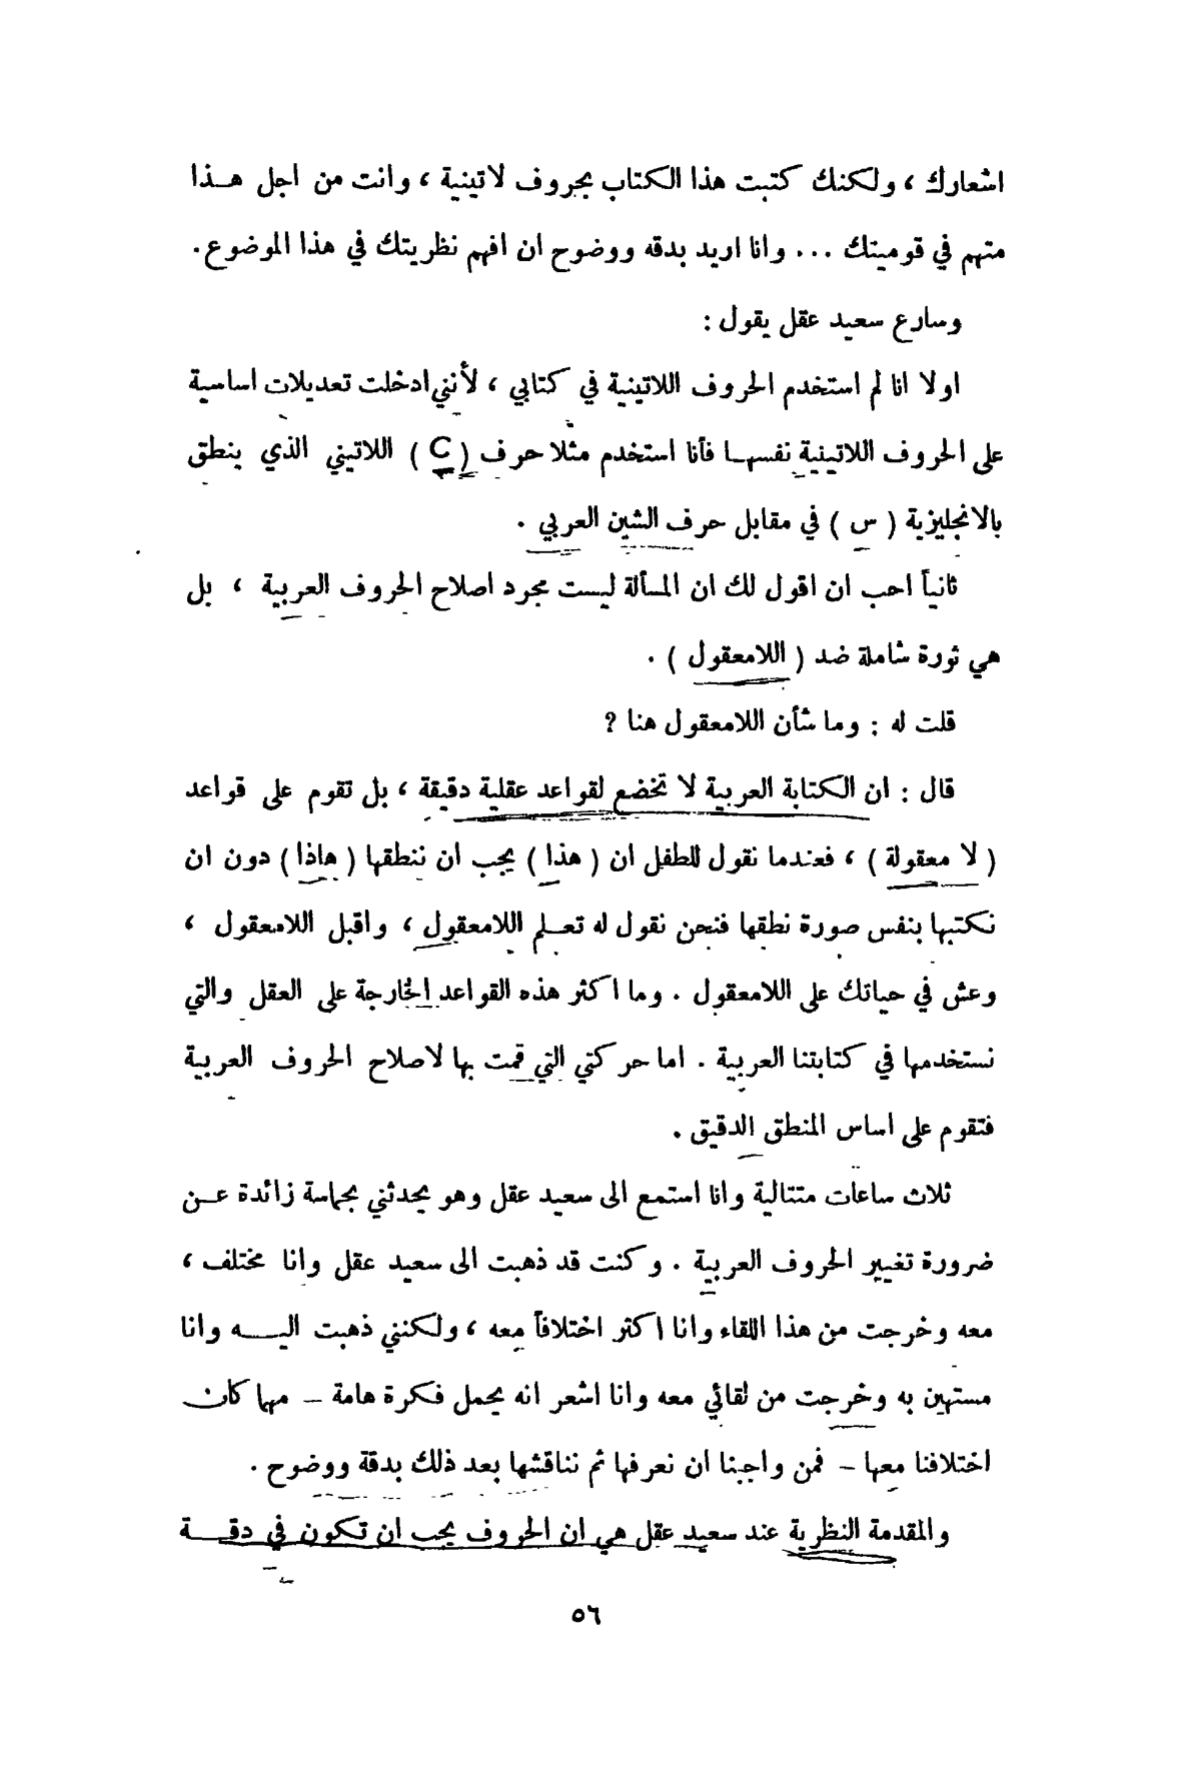 اشعارك ، ولكنك كتبت هذا الكتاب بحروف لاتينية ، وانت من اجل هـذا
متهم في قوميتك ... وانا اريد بدقه ووضوح ان افهم نظريتك في هذا الموضوع.
وسارع سعيد عقل يقول :
اولا انا لم استخدم الحروف اللاتينية في كتابي ، لأنني ادخلت تعديلات اساسية
على الحروف اللاتينية نفسهـا فأنا استخدم مثلا حرف ( C ) اللاتيني الذي ينطق
بالانجليزية ( س ) في مقابل حرف الشين العربي .
ثانياً احب ان اقول لك ان المسألة ليست مجرد اصلاح الحروف العربية ، بل
هي ثورة شاملة ضد ( اللامعقول ) .
قلت له : وما شأن اللامعقول هنا ?
قال : ان الكتابة العربية لا تخضع لقواعد عقلية دقيقة ، بل تقوم على قواعد
( لا معقولة ) ، فعندما نقول للطفل ان ( هذا ) يجب ان ننطقها ( هاذا ) دون ان
نكتبها بنفس صورة نطقها فنحن نقول له تعـلم اللامعقول ، واقبل اللامعقول ،
وعش في حياتك على اللامعقول . وما اكثر هذه القواعد الخارجة على العقل والتي
نستخدمها في كتابتنا العربية . اما حركتي التي قمت بها لاصلاح الحروف العربية
فتقوم على اساس المنطق الدقيق .
ثلاث ساعات متتالية وانا استمع الى سعيد عقل وهو يحدثني بحماسة زائدة عـن
ضرورة تغيير الحروف العربية . وكنت قد ذهبت الى سعيد عقل وانا مختلف ،
معه وخرجت من هذا اللقاء وانا اكثر اختلافاً معه ، ولكنني ذهبت اليـــه وانا
مستهين به وخرجت من لقائي معه وانا اشعر انه يحمل فكرة هامة – مهما كان
اختلافنا معها – فمن واجبنا ان نعرفها ثم نناقشها بعد ذلك بدقة ووضوح .
والمقدمة النظرية عند سعيد عقل هي ان الحروف يجب ان تكون في دقـــة
٥٦